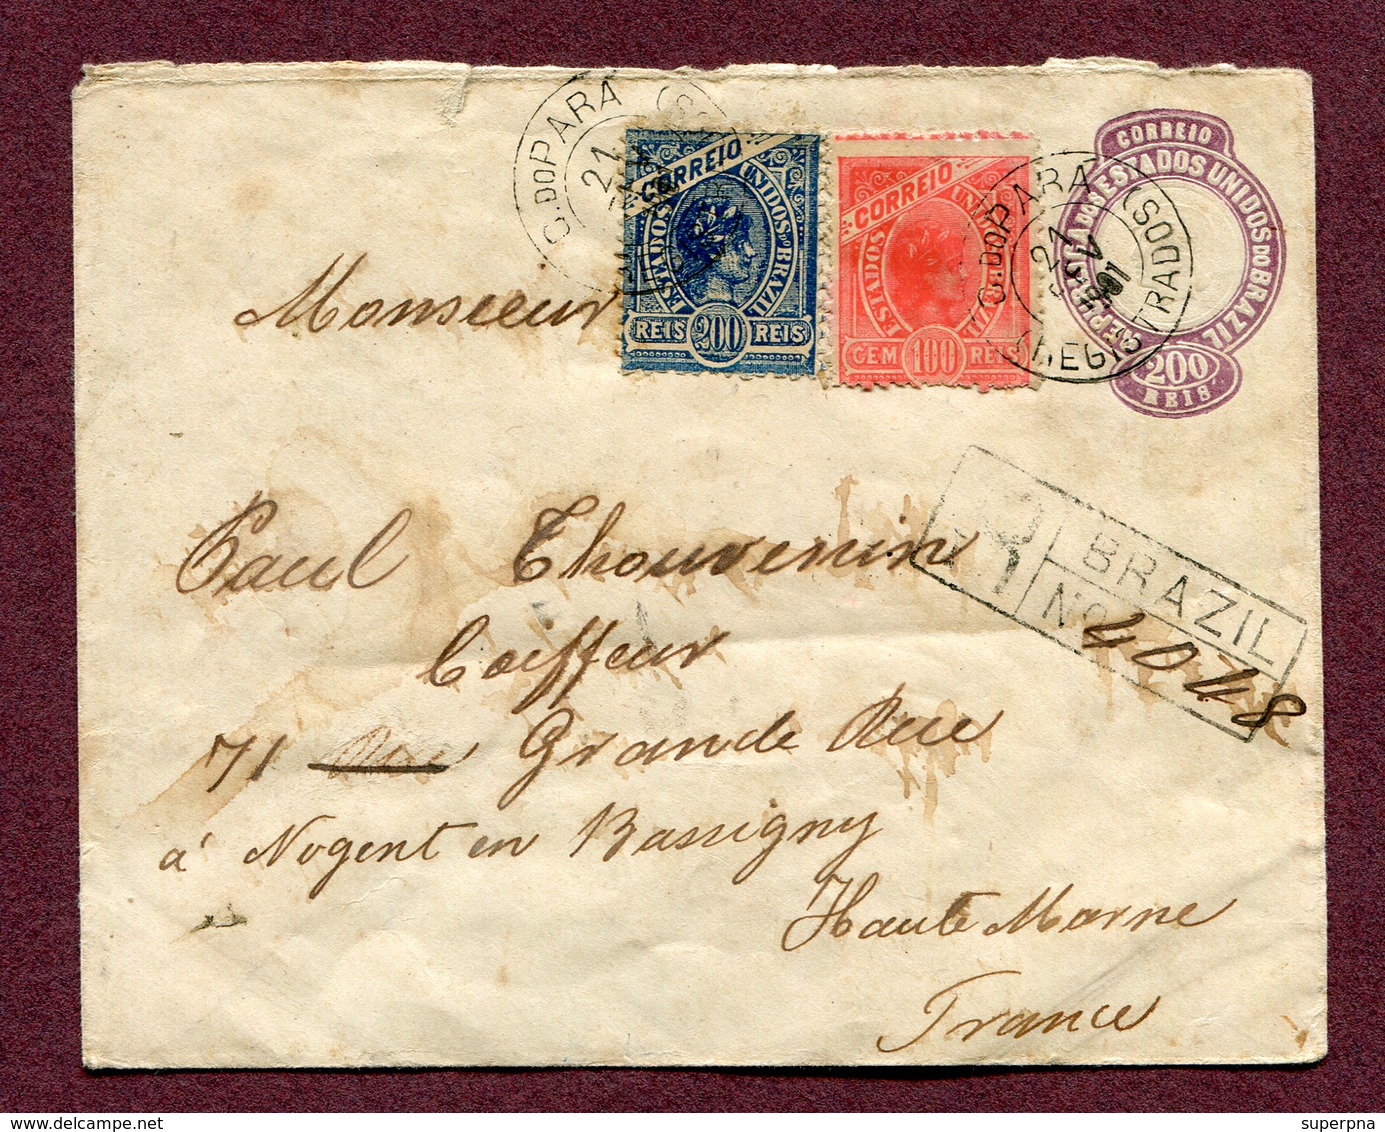 C. DO PARA
21
(S
CORREIO
ESTADOS UNIDOS DO BRAZIL
REIS 200 REIS
CORREIO
ESTADOS UNIDOS DO BRAZIL
CEM 100 REIS
C. DO PARA
21
(REGISTRADOS)
CORREIO
DOS ESTADOS UNIDOS DO BRAZIL
200
REIS
Monsieur
Paul Thouvenin
Coiffeur
71 Rue Grande Rue
à Nogent en Bassigny
Haute Marne
France
R
BRAZIL
No 40748
superpna